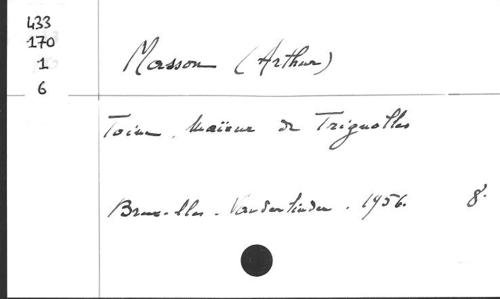 433
170
1
6
Masson (Arthur)
Toine, Maïeur de Trignolles
Bruxelles - Vanderlinden . 1956. 8°